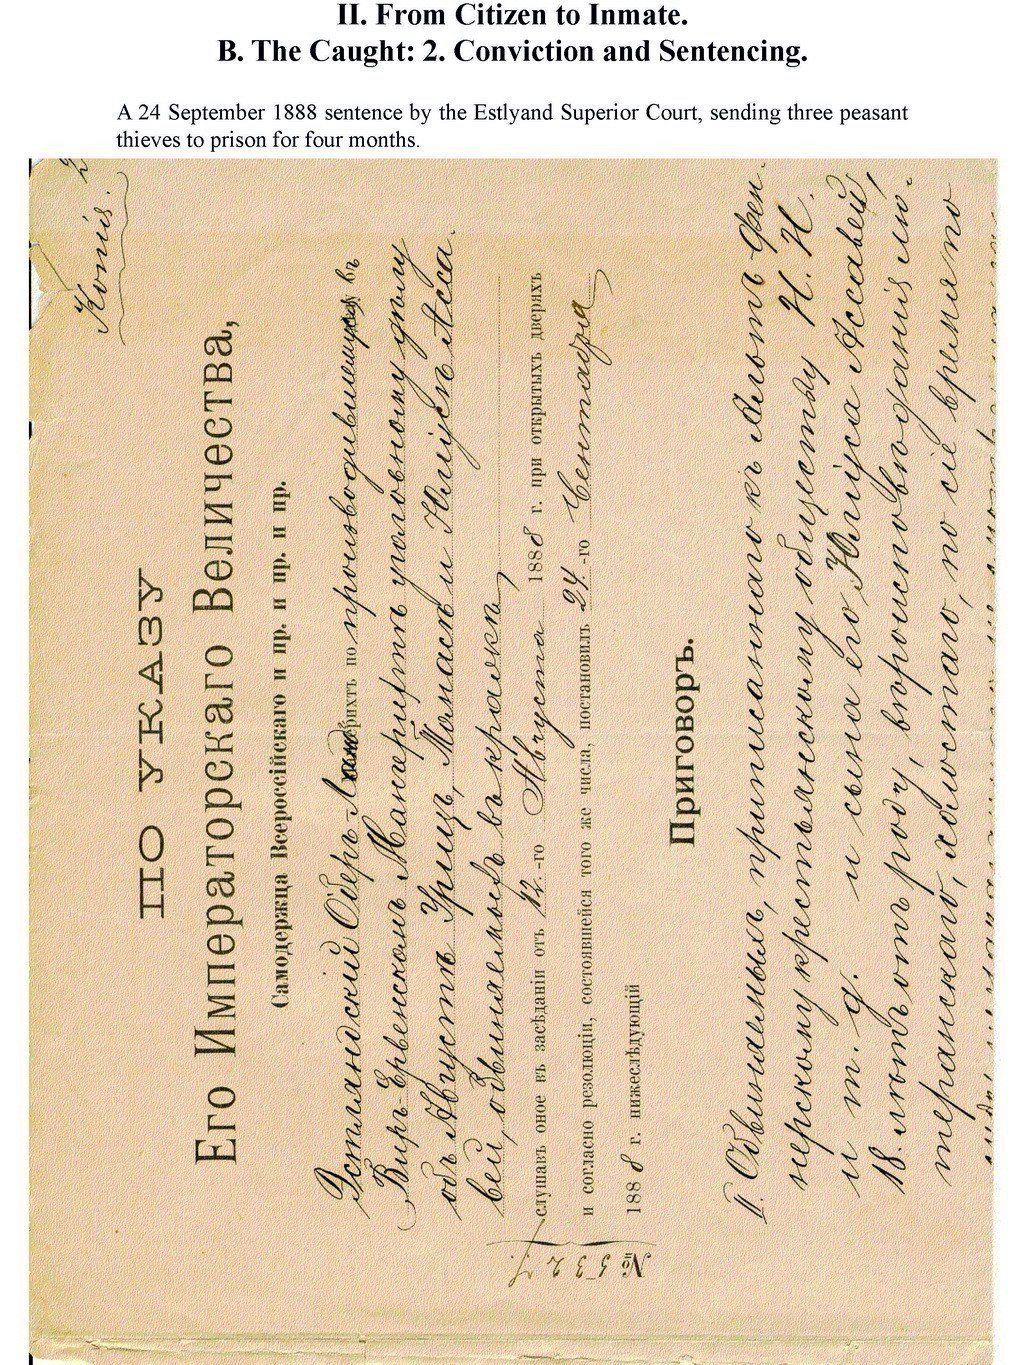 II. From Citizen to Inmate.
B. The Caught: 2. Conviction and Sentencing.
A 24 September 1888 sentence by the Estlyand Superior Court, sending three peasant
thieves to prison for four months.
Копія.
ПО УКАЗУ
Его Императорскаго Величества,
Самодержца Всероссійскаго и пр. и пр. и пр.
Эстляндскій Оберъ-Ландгерихтъ по производившемуся въ
Виръ-Ервенскомъ Мангерихтѣ уголовному дѣлу
объ Августѣ Уріиъ, и Юліусѣ Асса
вей, обвиняемыхъ въ кражѣ,
слушавъ оное въ засѣданіи отъ 12.-го Августа 1888 г. при открытыхъ дверяхъ
и согласно резолюціи, состоявшейся того же числа, постановилъ 24.-го Сентября
1888 г. нижеслѣдующій
№ 5327.
Приговоръ.
II. Обвиняемый, приписаннаго къ Альтъ-Фен.
нерскому крестьянскому обществу Н. Н.
и т. д. и сына его Юліуса Ассавей,
18 лѣтъ отъ роду, вѣроисповѣданія лю-
теранскаго, холостаго, по сіе время по